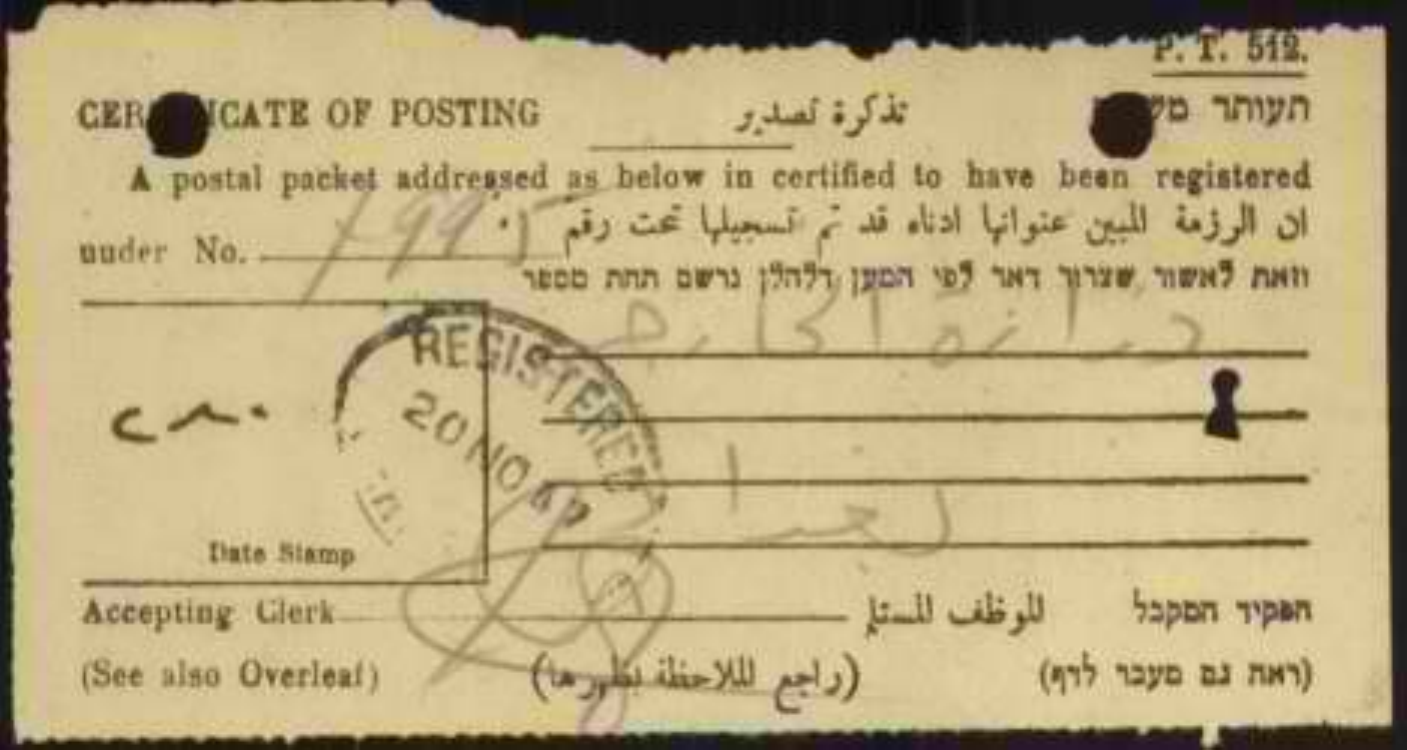 P. T. 512.
CER ICATE OF POSTING تذكرة تصدير תעודת
A postal packet addressed as below in certified to have been registered
under No. 1995 ان الرزمة المبين عنوانها ادناه قد تم تسجيلها تحت رقم
וזאת לאשור שצרור דאר לפי המען דלהלן נרשם תחת מספר
REGISTERED
20 NO 47
Date Stamp
Accepting Clerk الموظف المستلم הפקיד המקבל
(See also Overleaf) (راجع الملاحظة بظهرها) (ראה גם מעבר לדף)